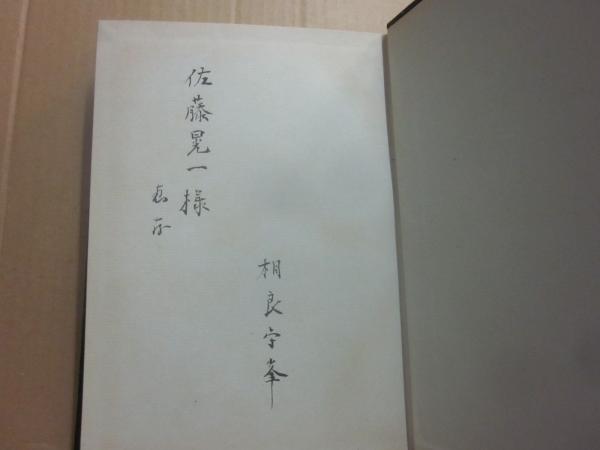 佐藤晃一様
恵存
相良守峯